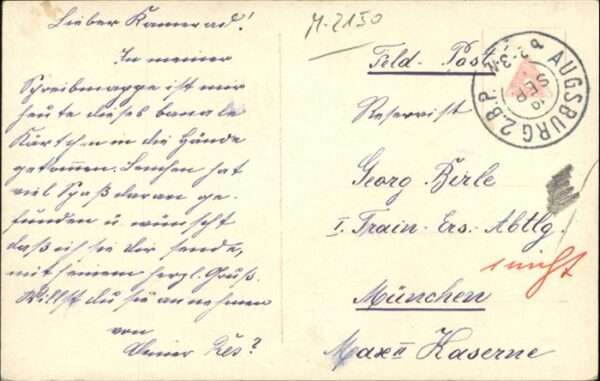 Lieber Kamerad!
In meiner
Schreibmappe ist mir
heute dieses banale
Kärtchen in die Hände
gekommen. Lenchen hat
viel Spaß daran ge-
funden u. wünscht
daß ich sie dir sende,
mit seinem herzl. Gruß.
Willst du sie annehmen
von
Deiner Res?
M-2150
Feld-Post
AUGSBURG 2.B.P.
SEP
Reservist
Georg Birle
I. Train-Ers.-Abtlg.
München
Max II Kaserne